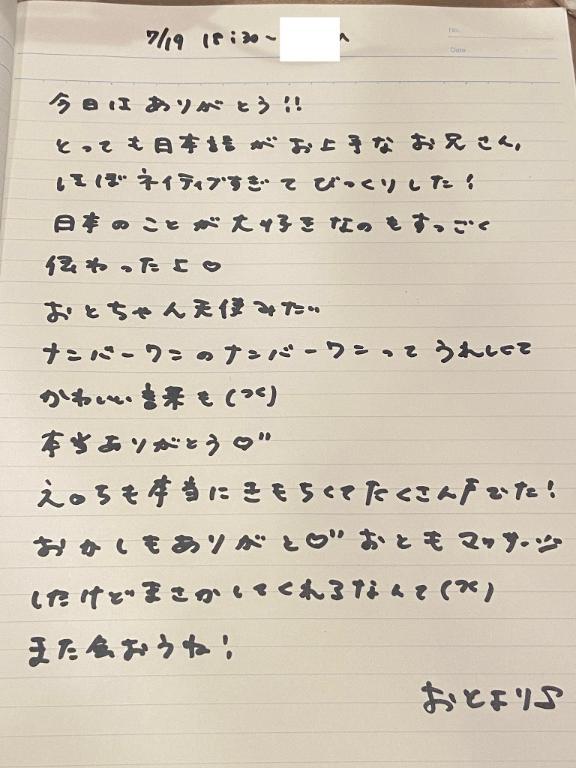 No.
Date
7/19 18:30~ へ
今日はありがとう!!
とっても日本語がお上手なお兄さん、
ほぼネイティブすぎてびっくりした!
日本のことが大好きなのもすっごく
伝わったよ♡
おとちゃん天使みたい
ナンバーワンのナンバーワンって うれしくて
かわいい言葉も(笑)
本当ありがとう♡"
え○ちも本当にきもちくてたくさん声でた!
おかしもありがと♡" おともマッサージ
したけどまさかしてくれるなんて(笑)
また会おうね!
おとより♪